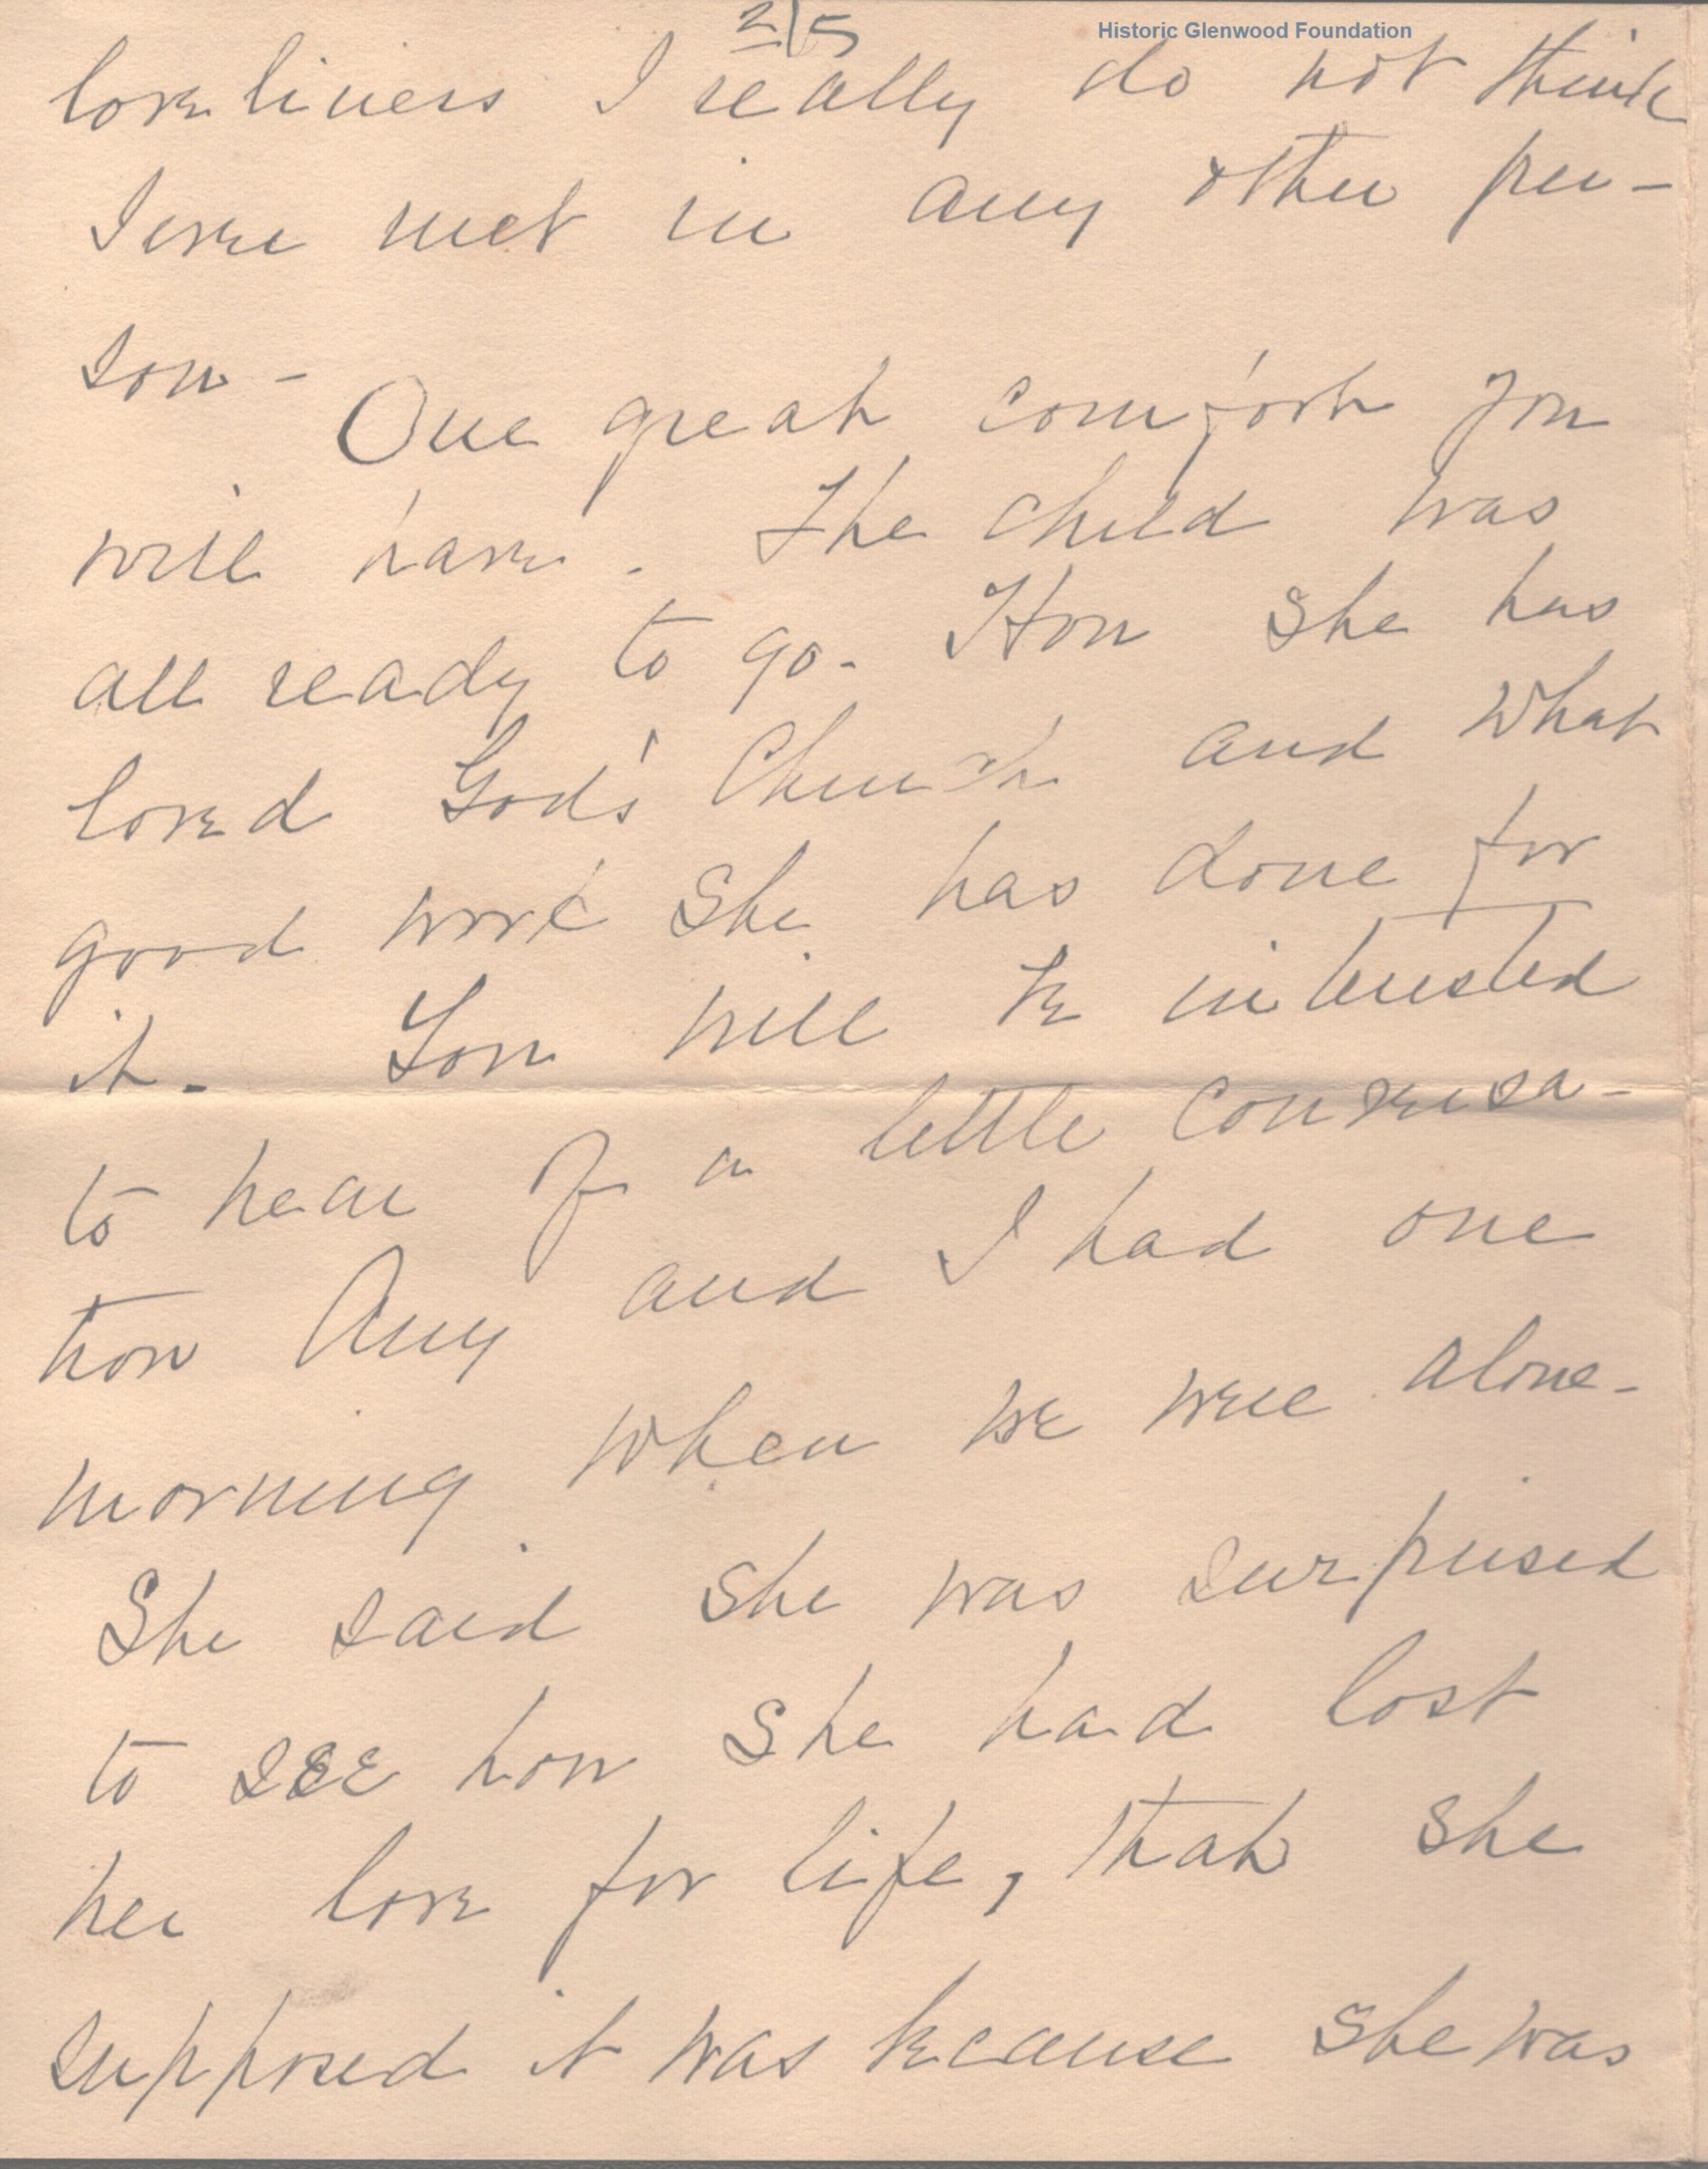 2/5
Historic Glenwood Foundation
loveliness I really do not think
I ever met in any other per-
son -
One great comfort you
will have. The child was
all ready to go. How she has
loved God's Church and what
good work she has done for
it - You will be interested
to hear of a little conversa-
tion Amy and I had one
morning when we were alone -
She said she was surprised
to see how she had lost
her love for life, that she
supposed it was because she was